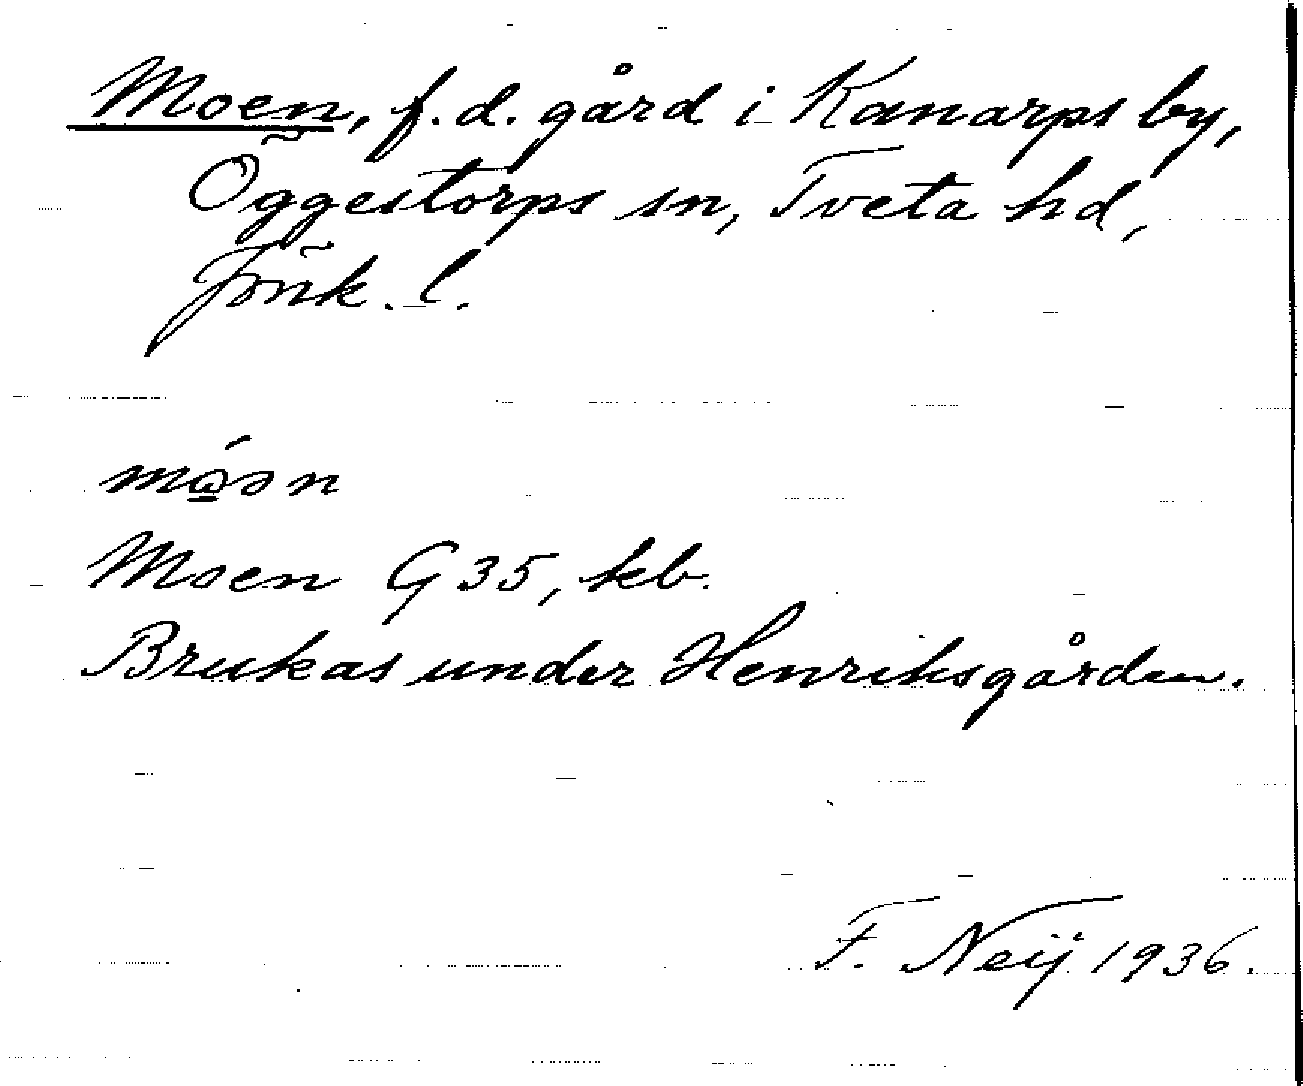 Moen, f. d. gård i Kanarps by,
Öggestorps sn, Tveta hd,
Jönk. l.
Moen G 35, kb.
Brukas under Henriksgården.
F. Neij 1936.